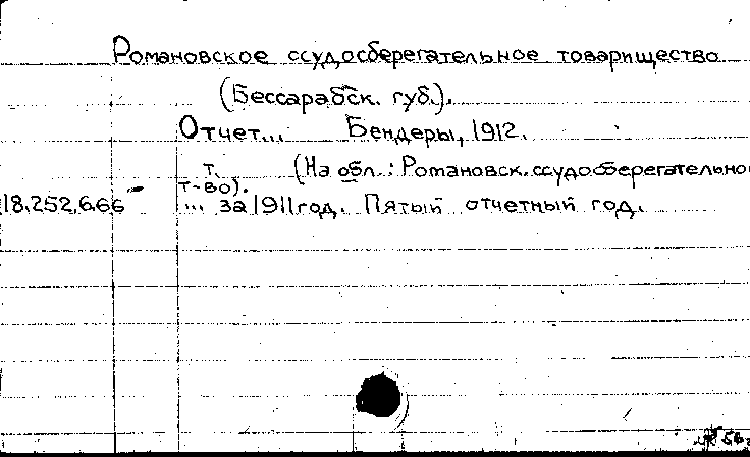 Романовское ссудосберегательное товарищество
(Бессарабск. губ.).
Отчет... Бендеры, 1912.
т. (На обл.: Романовск. ссудосберегательно
т-во).
18.252.6.66 ... за 1911 год. Пятый отчетный год.